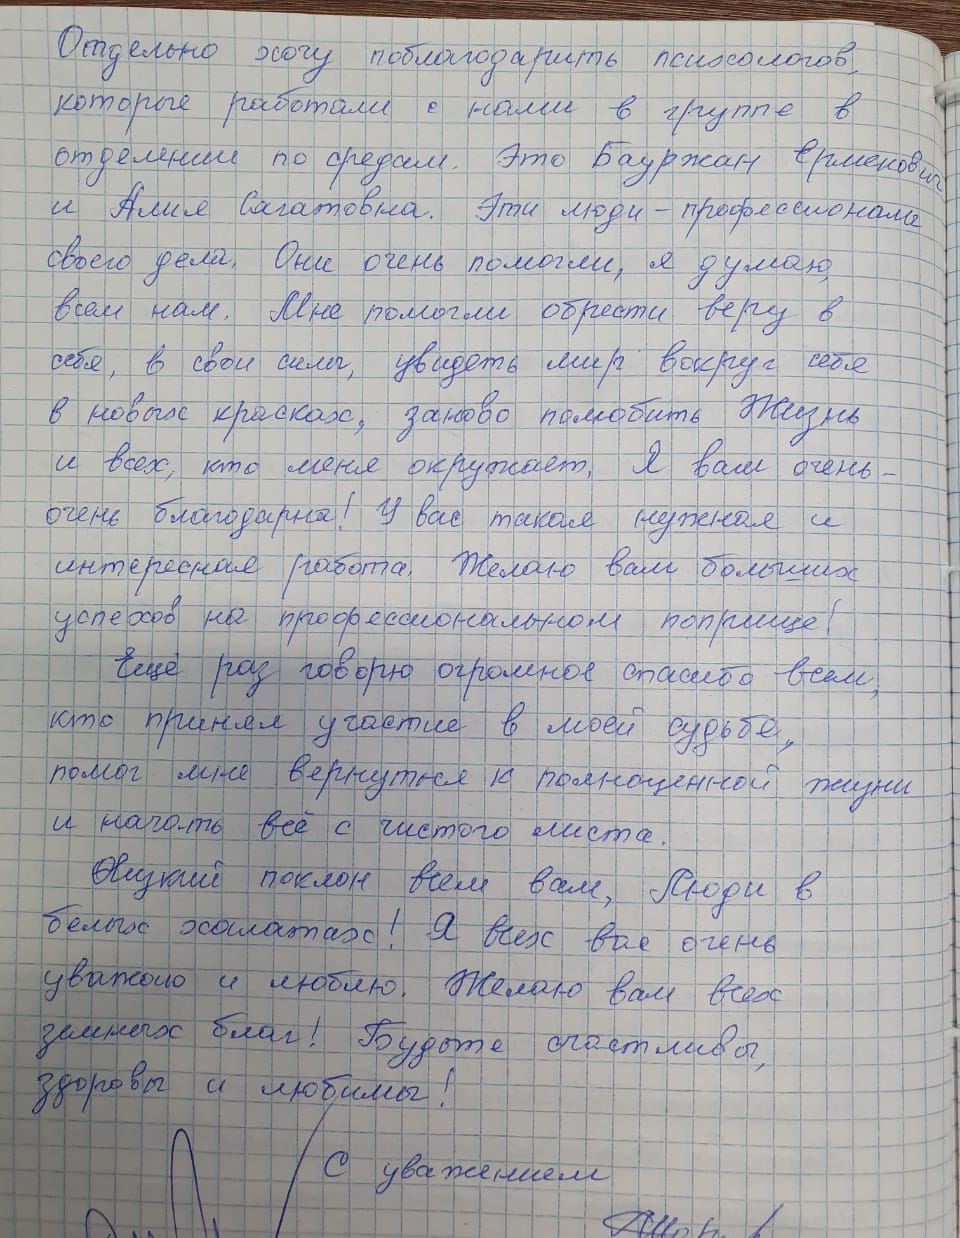 Отдельно хочу поблагодарить психологов,
которые работали с нами в группе в
отделении по средам. Это Бауржан Ерменович
и Алия Сагатовна. Эти люди – профессионалы
своего дела. Они очень помогли, я думаю,
всем нам. Мне помогли обрести веру в
себя, в свои силы, увидеть мир вокруг себя
в новых красках, заново полюбить Жизнь
и всех, кто меня окружает. Я вам очень-
очень благодарна! У вас такая нужная и
интересная работа. Желаю вам больших
успехов на профессиональном поприще!
Ещё раз говорю огромное спасибо всем,
кто принял участие в моей судьбе,
помог мне вернуться к полноценной жизни
и начать всё с чистого листа.
Низкий поклон всем вам, Люди в
белых халатах! Я всех вас очень
уважаю и люблю. Желаю вам всех
земных благ! Будьте счастливы,
здоровы и любимы!
С уважением